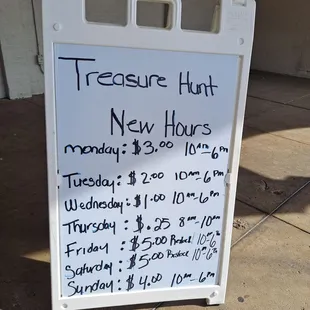 Treasure Hunt
New Hours
monday: $3.00 10am-6pm
Tuesday: $2.00 10am-6pm
Wednesday: $1.00 10am-6pm
Thursday: $.25 8am-10am
Friday: $5.00 10am-6pm
Saturday: $5.00 10am-6pm
Sunday: $4.00 10am-6pm